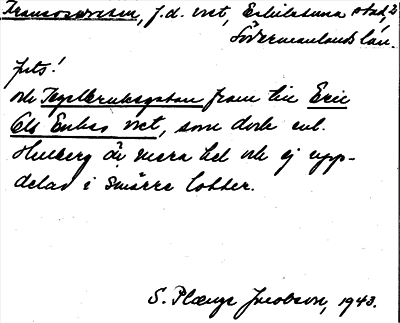 Fransosvreten, f.d. vret, Eskilstuna stad, 2
Södermanlands län.
forts!
och Tegelbruksgatan fram till Eric
Ols Enkes vret, som dock enl.
Hulberg är mera hel och ej upp-
delad i smärre lotter.
S. Plænge Jacobson, 1943.